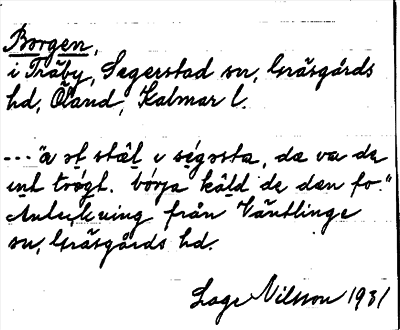 Borgen,
i Träby, Segerstad sn, Gräsgårds
hd, Öland, Kalmar l.
--- "a ət stäl v ségəsta, də va də
int trøgt. børja käld de dən fo."
Anteckning från Väntlinge
sn, Gräsgårds hd.
Lage Nilsson 1931